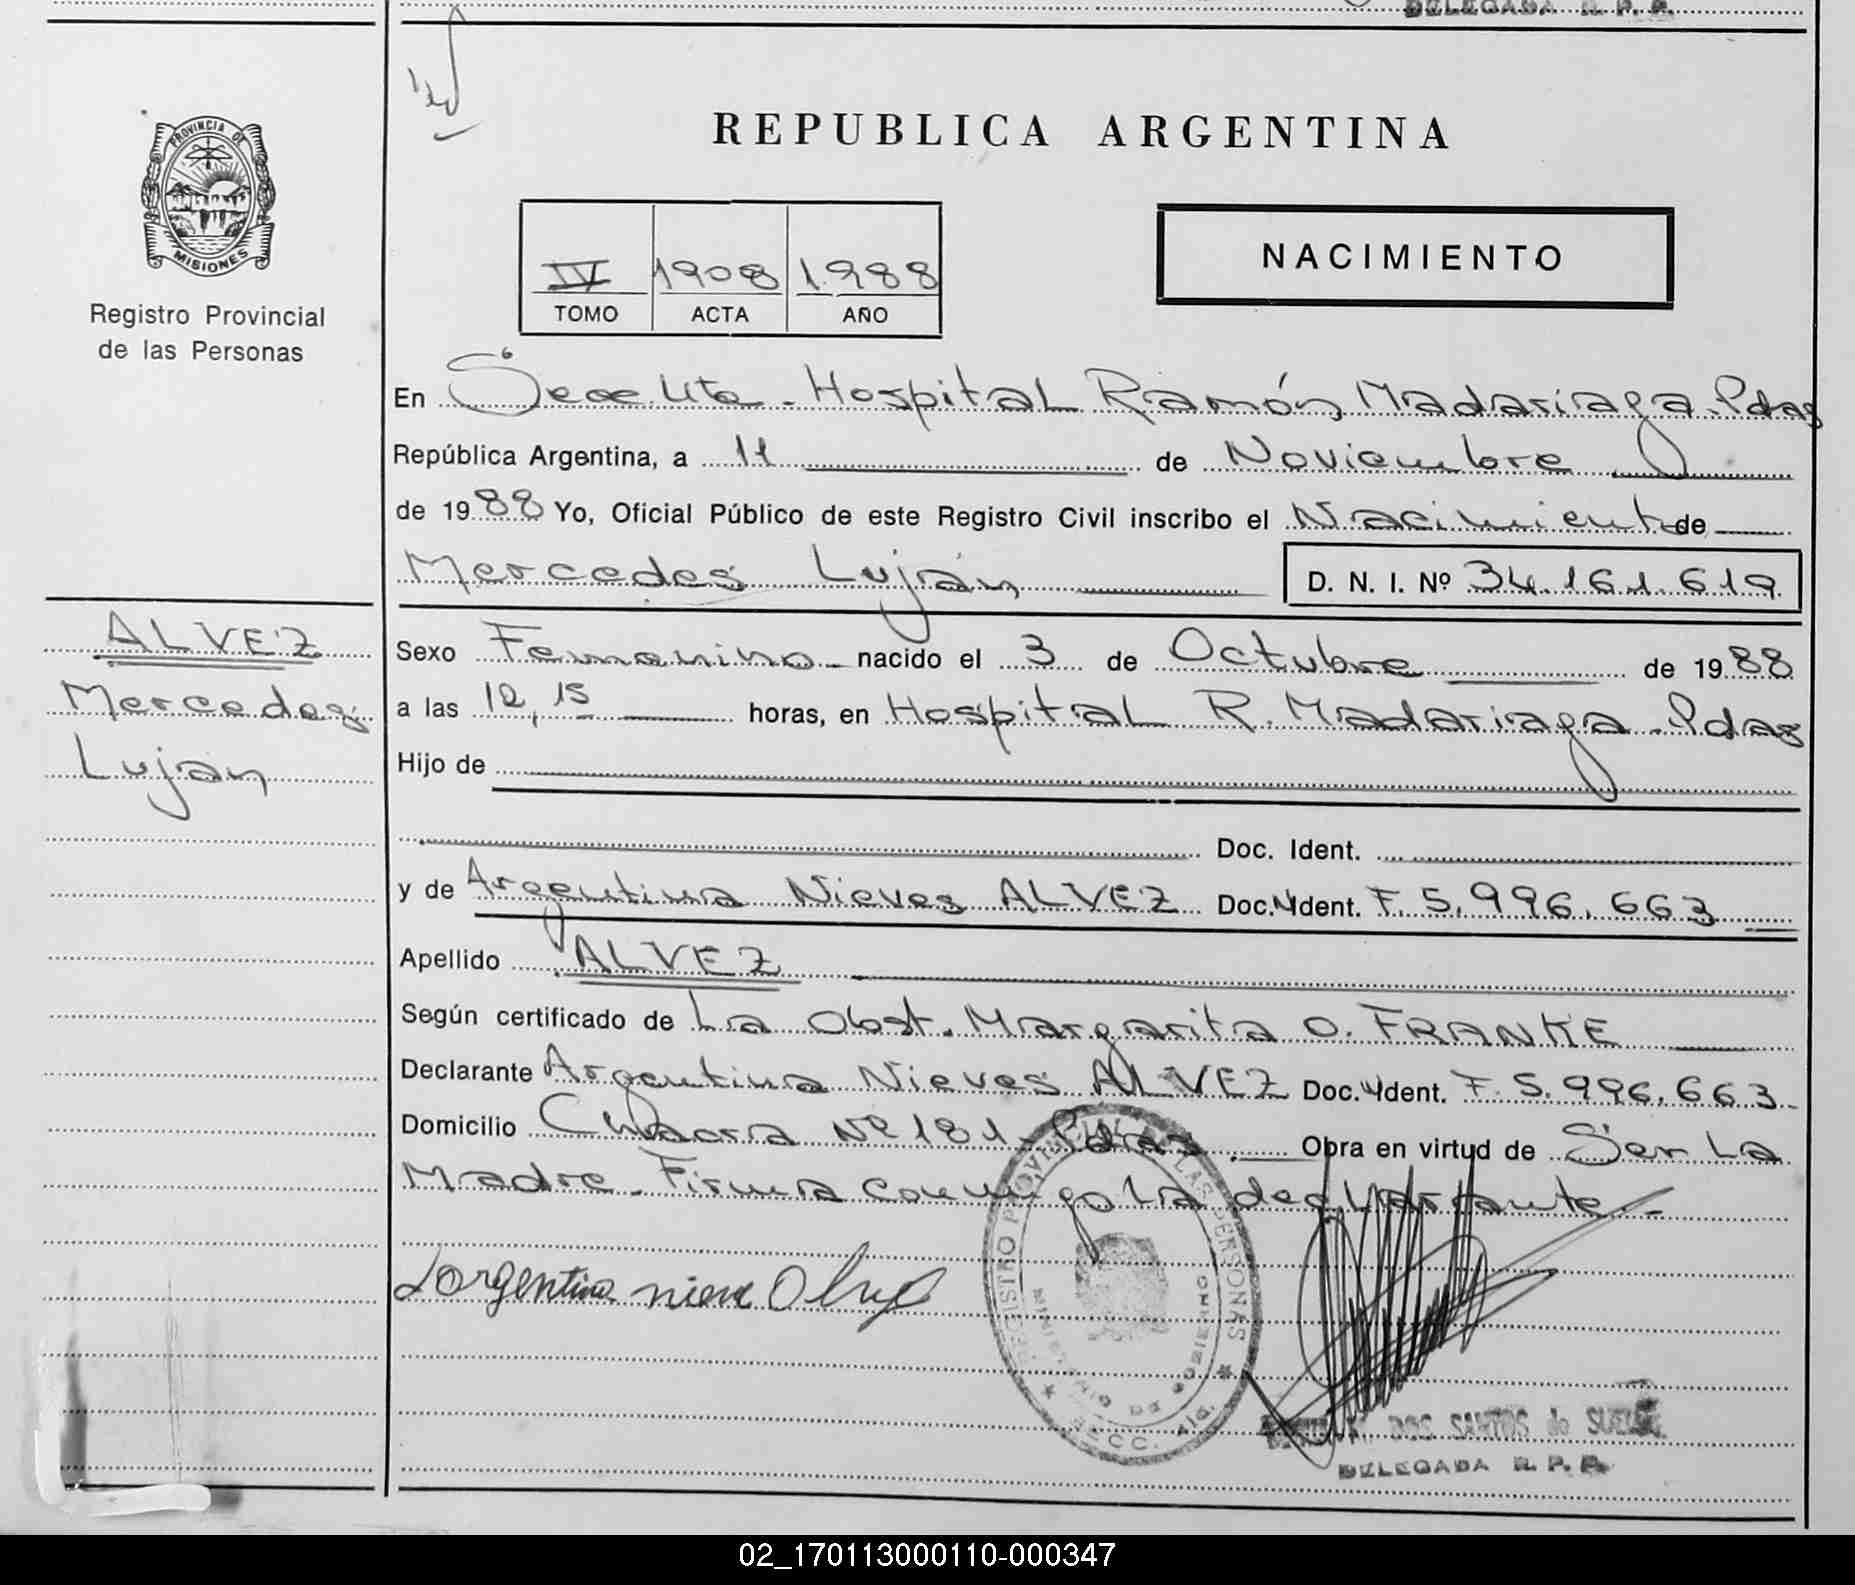 DELEGADA R. P. P.
PROVINCIA DE
MISIONES
Registro Provincial
de las Personas
REPUBLICA ARGENTINA
IV 1908 1988
TOMO ACTA AÑO
NACIMIENTO
En Hospital Ramón Madariaga. Pdas
República Argentina, a 11 de Noviembre
de 1988 Yo, Oficial Público de este Registro Civil inscribo el Nacimiento de
Mercedes Luján D. N. I. Nº 34.161.619
ALVEZ
Mercedes
Luján
Sexo Femenino nacido el 3 de Octubre de 1988
a las 12,15 horas, en Hospital R. Madariaga - Pdas
Hijo de
Doc. Ident.
y de Argentina Nieves ALVEZ Doc. Ident. F. 5.996.663
Apellido ALVEZ
Según certificado de La Obst. Margarita O. FRANKE
Declarante Argentina Nieves ALVEZ Doc. Ident. F. 5.996.663
Domicilio Chacra Nº 181 - Pdas. Obra en virtud de Ser La
Madre. Firma conmigo La declarante.-
REGISTRO PROVINCIAL DE LAS PERSONAS
MINISTERIO DE GOBIERNO
DOS SANTOS de
DELEGADA R. P. P.
02_170113000110-000347